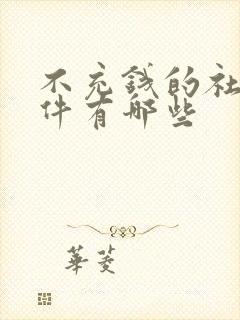 不充錢的社
件有哪些
華菱